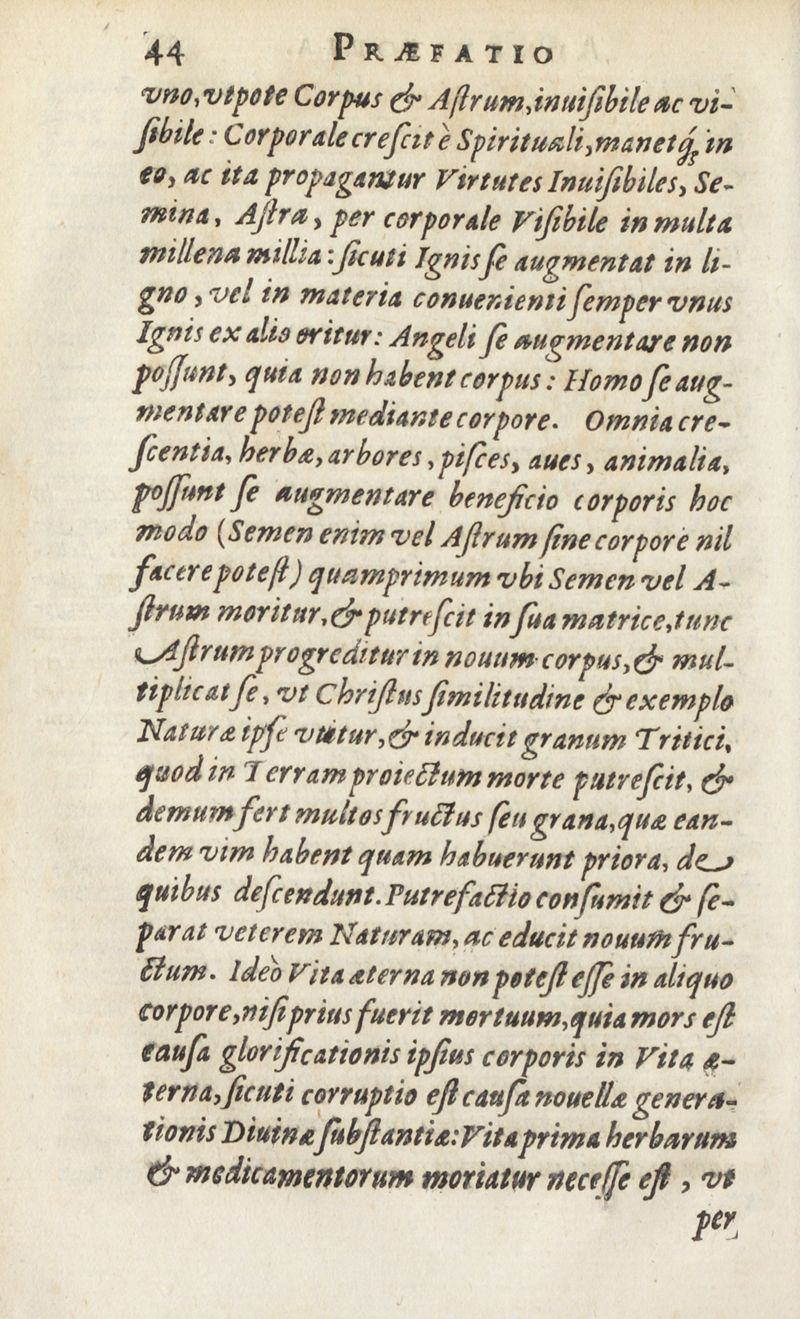 44 PRÆFATIO
vno, vtpote Corpus & Aſtrum, inuiſibile ac vi-
ſibile: Corporale creſcit è Spirituali, manetq́ꝫ in
eo, ac ita propagantur Virtutes Inuiſibiles, Se-
mina, Aſtra, per corporale Viſibile in multa
millena millia: ſicuti Ignis ſe augmentat in li-
gno, vel in materia conuenienti ſemper vnus
Ignis ex alio oritur: Angeli ſe augmentare non
poſſunt, quia non habent corpus: Homo ſe aug-
mentare poteſt mediante corpore. Omnia cre-
ſcentia, herbæ, arbores, piſces, aues, animalia,
poſſunt ſe augmentare beneficio corporis hoc
modo (Semen enim vel Aſtrum ſine corpore nil
facere poteſt) quamprimum vbi Semen vel A-
ſtrum moritur, & putreſcit in ſua matrice, tunc
Aſtrum progreditur in nouum corpus, & mul-
tiplicat ſe, vt Chriſtus ſimilitudine & exemplo
Naturæ ipſe vtitur, & inducit granum Tritici,
quod in Terram proiectum morte putreſcit, &
demum fert multos fructus ſeu grana, quæ ean-
dem vim habent quam habuerunt priora, de
quibus deſcendunt. Putrefactio conſumit & ſe-
parat veterem Naturam, ac educit nouum fru-
ctum. Ideò Vita æterna non poteſt eſſe in aliquo
corpore, niſi prius fuerit mortuum, quia mors eſt
cauſa glorificationis ipſius corporis in Vita æ-
terna, ſicuti corruptio eſt cauſa nouellæ genera-
tionis Diuinæ ſubſtantiæ: Vita prima herbarum
& medicamentorum moriatur neceſſe eſt, vt
per